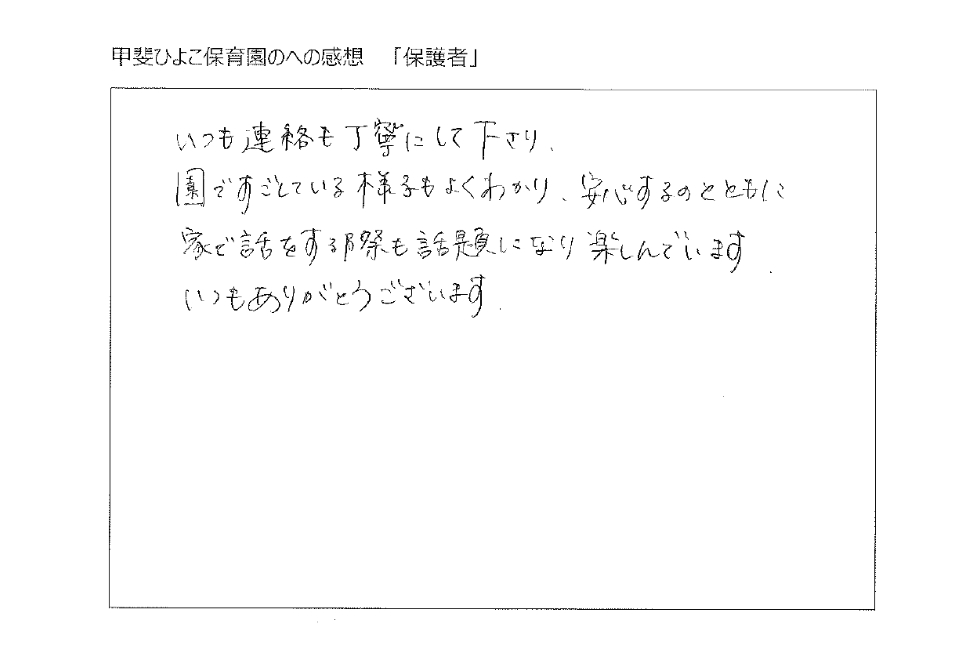 甲斐ひよこ保育園のへの感想　「保護者」
いつも連絡も丁寧にして下さり、
園ですごしている様子もよくわかり、安心するのとともに
家で話をする際も話題になり楽しんでいます.
いつもありがとうございます.